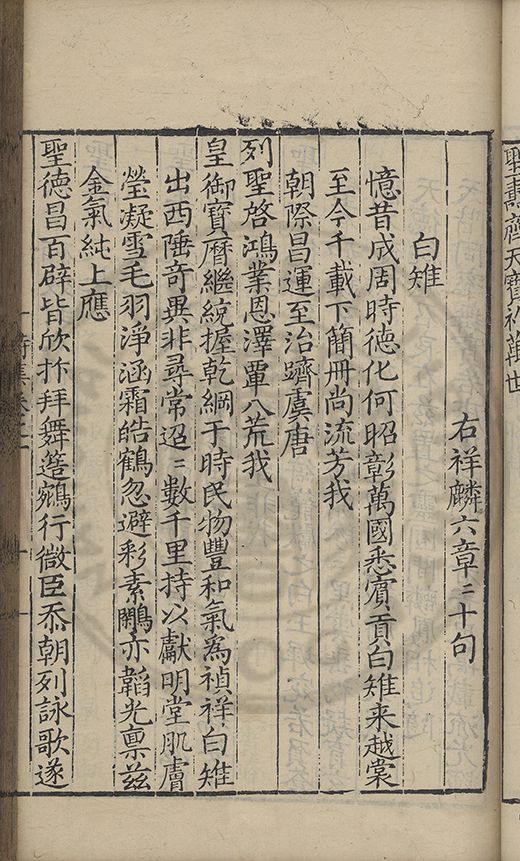 聖壽齊天寶祚萬世
右祥麟六章〻十句
白雉
憶昔成周時德化何昭彰萬國悉賓貢白雉来越棠
至今千載下簡冊尚流芳我
朝際昌運至治躋虞唐
列聖啓鴻業恩澤覃八荒我
皇御寶曆繼統握乾綱于時民物豐和氣爲禎祥白雉
出西陲奇異非尋常迢〻數千里持以獻明堂肌膚
瑩凝雪毛羽淨涵霜皓鶴忽避彩素鷴亦韜光禀兹
金氣純上應
聖德昌百辟皆欣抃拜舞簉鵷行微臣忝朝列詠歌遂